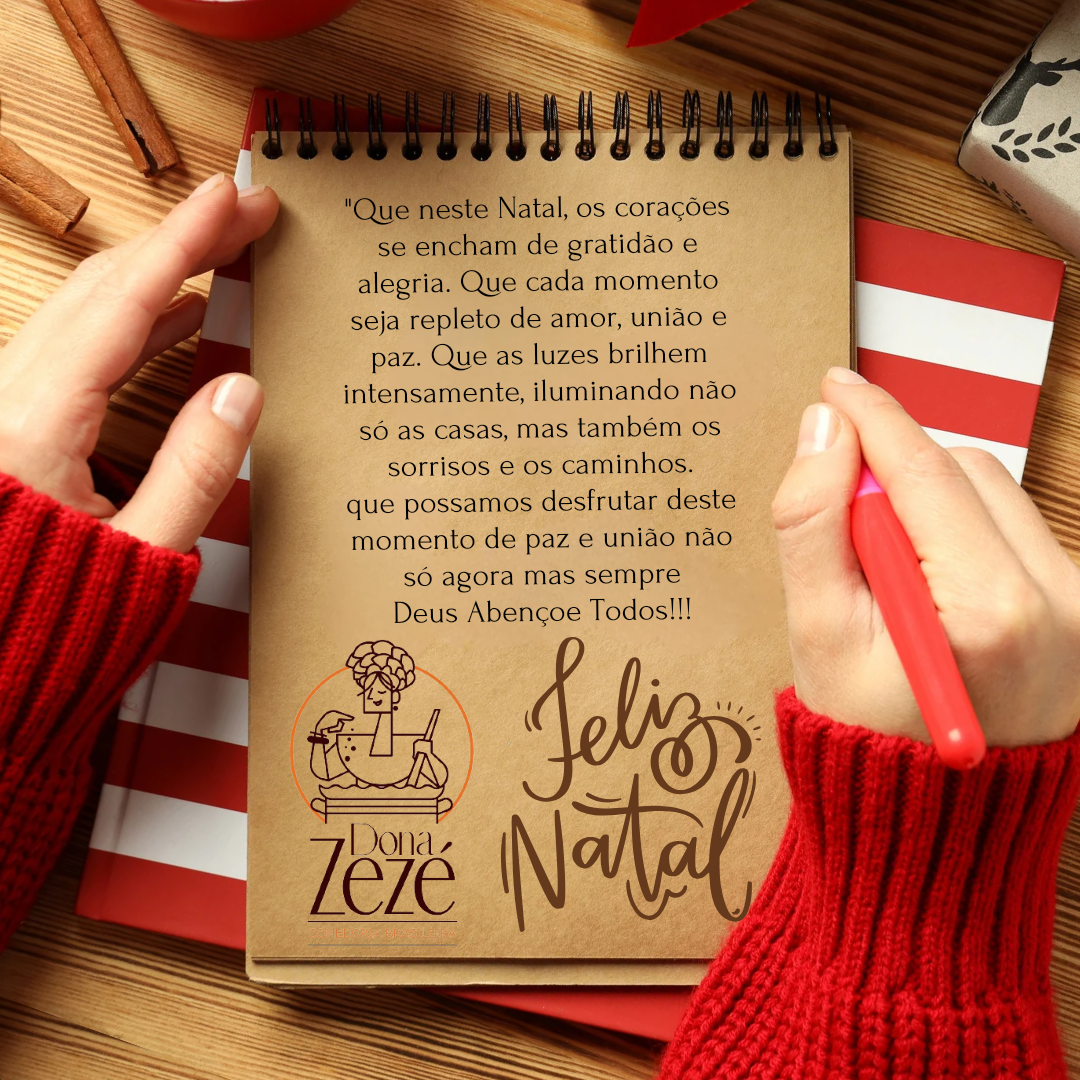 "Que neste Natal, os corações
se encham de gratidão e
alegria. Que cada momento
seja repleto de amor, união e
paz. Que as luzes brilhem
intensamente, iluminando não
só as casas, mas também os
sorrisos e os caminhos.
que possamos desfrutar deste
momento de paz e união não
só agora mas sempre
Deus Abençoe Todos!!!
Feliz
Natal
Dona
Zezé